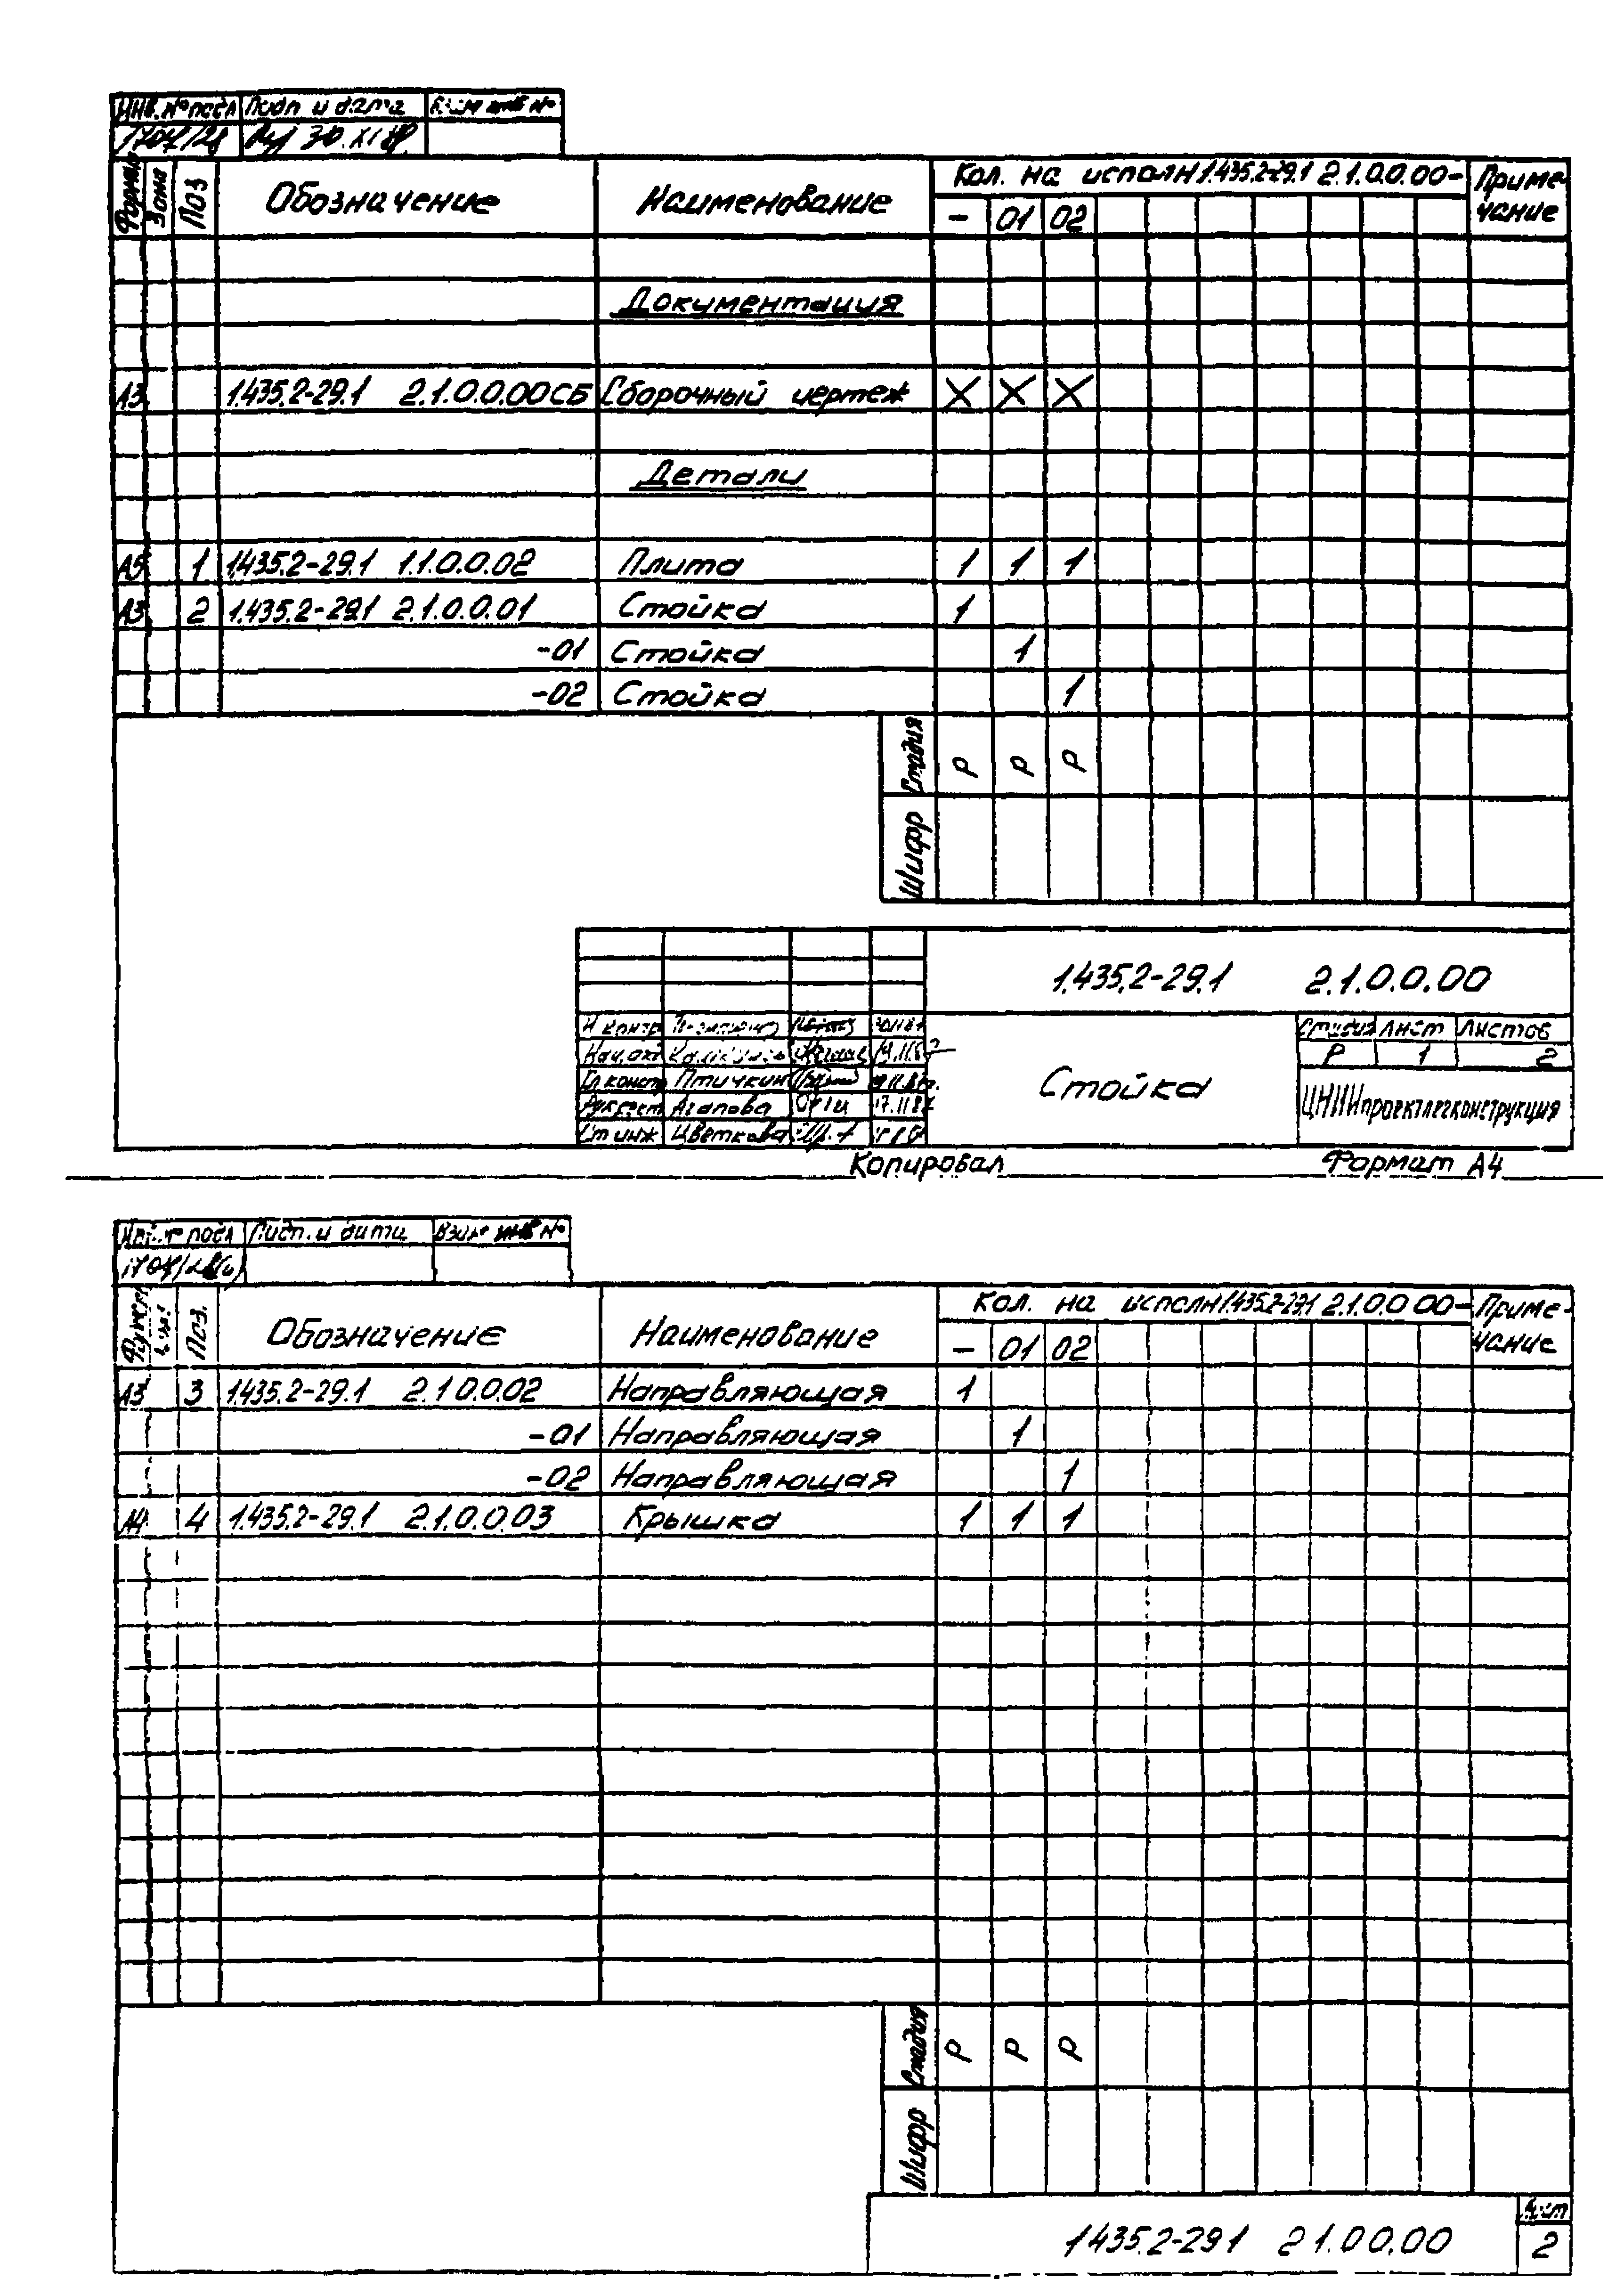 Инв. № подл Подп и дата Взам инв №
30.XI
Формат Зона Поз Обозначение Наименование Кол. на исполн 1.435.2-29.1 2.1.0.0.00- Приме-
чание
- 01 02
Документация
А3 1.435.2-29.1 2.1.0.0.00СБ Сборочный чертеж X X X
Детали
А5 1 1.435.2-29.1 1.1.0.0.02 Плита 1 1 1
А3 2 1.435.2-29.1 2.1.0.0.01 Стойка 1
-01 Стойка 1
-02 Стойка 1
Стадия Р Р Р
Шифр
1.435.2-29.1 2.1.0.0.00
Н контр
Нач. отд
Гл констр Птичкин
Рук гр Агапова 17.11.8
Ст инж Цветкова
Стойка
Стадия Лист Листов
Р 1 2
ЦНИИпроектлегконструкция
Копировал Формат А4
Инв. № подл Подп. и дата Взам инв №
Формат Зона Поз. Обозначение Наименование Кол. на исполн 1.435.2-29.1 2.1.0.0 00- Приме-
чание
- 01 02
А3 3 1.435.2-29.1 2.1 0.0.02 Направляющая 1
-01 Направляющая 1
-02 Направляющая 1
А4 4 1.435.2-29.1 2.1.0.0.03 Крышка 1 1 1
Стадия Р Р Р
Шифр
1 435.2-29 1 2 1.0 0.00
Лист
2